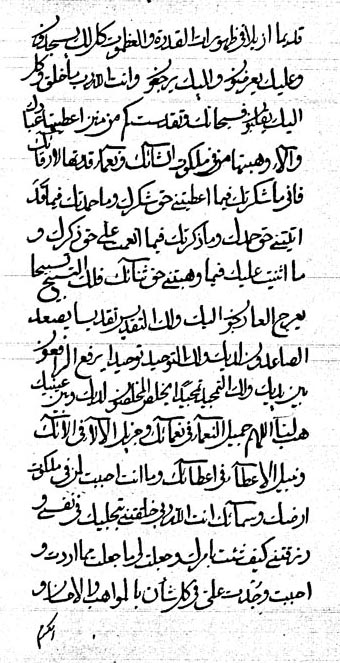 قديما ازليا في ظهورات القدرة والعظموت كل لك يسجدون
وعليك يعرضون واليك يرجعون وانت الله رب الخلق وكل
اليك ينقلبون فسبحانك وتقدست كم من منن اعطيتها عبادك
وآلاء وهبتها من في ملكوت
فاني ما شكرتك فيما اعطيتني حق شكرك وما حمدتك فيما قد
اتيتني حق حمدك وما ذكرتك فيما انعمت علي حق ذكرك و
ما اثنيت عليك فيما وهبتني حق ثنائك فلك التسبيح تسبيحا
يعرج العارجون اليك ولك التقديس تقديسا يصعد
الصاعدون اليك ولك التوحيد توحيدا يرفع الرافعون
بين يديك ولك التمجيد تمجيدا يخلص المخلصون لديك وبين عينيك
هب لنا اللهم جميل النعماء في نعمائك وجزيل الآلاء في آلائك
ونبيل الاعطاء في اعطائك وما انت احببت لمن في ملكوت
ارضك وسمائك انت الله ربي خلقتني بتجليك في نفسي و
رزقتني كيف شئت بامرك وجعلت لي ما جعلت مما اردت و
احببت وجُدت علي في كل شأن بالمواهب والاحسان و